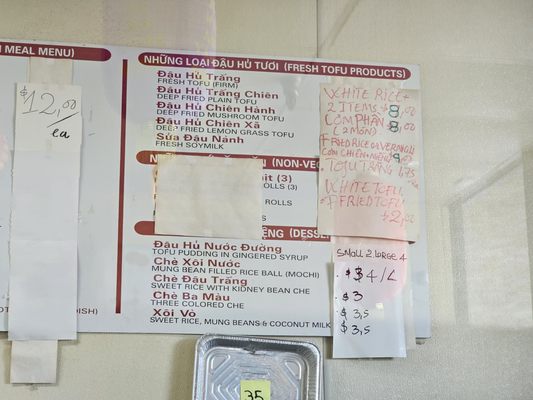 N MEAL MENU)
$12,00/
ea
NHỮNG LOẠI ĐẬU HỦ TƯƠI (FRESH TOFU PRODUCTS)
Đậu Hủ Trắng
FRESH TOFU (FIRM)
Đậu Hủ Trắng Chiên
DEEP FRIED PLAIN TOFU
Đậu Hủ Chiên Hành
DEEP FRIED MUSHROOM TOFU
Đậu Hủ Chiên Xả
DEEP FRIED LEMON GRASS TOFU
Sữa Đậu Nành
FRESH SOYMILK
(NON-VE
(3)
ROLLS
ROLLS
WHITE RICE +
2 ITEMS 8,00
CƠM PHẦN 8,00
(2 MÓN)
FRIED RICE OR VERMICELLI
CƠM CHIÊN 9,00
TOFU TRẮNG 1,75
WHITE TOFU
FRIED TOFU
2,00
ENG (DESSE
Đậu Hủ Nước Đường
TOFU PUDDING IN GINGERED SYRUP
Chè Xôi Nước
MUNG BEAN FILLED RICE BALL (MOCHI)
Chè Đậu Trắng
SWEET RICE WITH KIDNEY BEAN CHE
Chè Ba Màu
THREE COLORED CHE
Xôi Vò
SWEET RICE, MUNG BEANS & COCONUT MILK
SMALL 2 LARGE 4
$3
$3,5
$3,5
DISH)
35